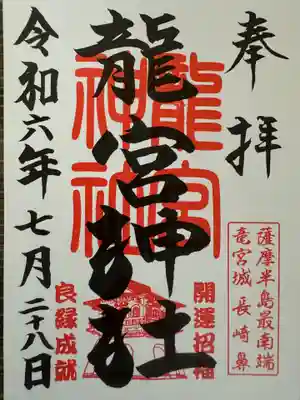 奉拝
薩摩半島最南端
竜宮城 長崎鼻
開運招福
龍宮神社
龍宮神社
良縁成就
令和六年七月二十八日